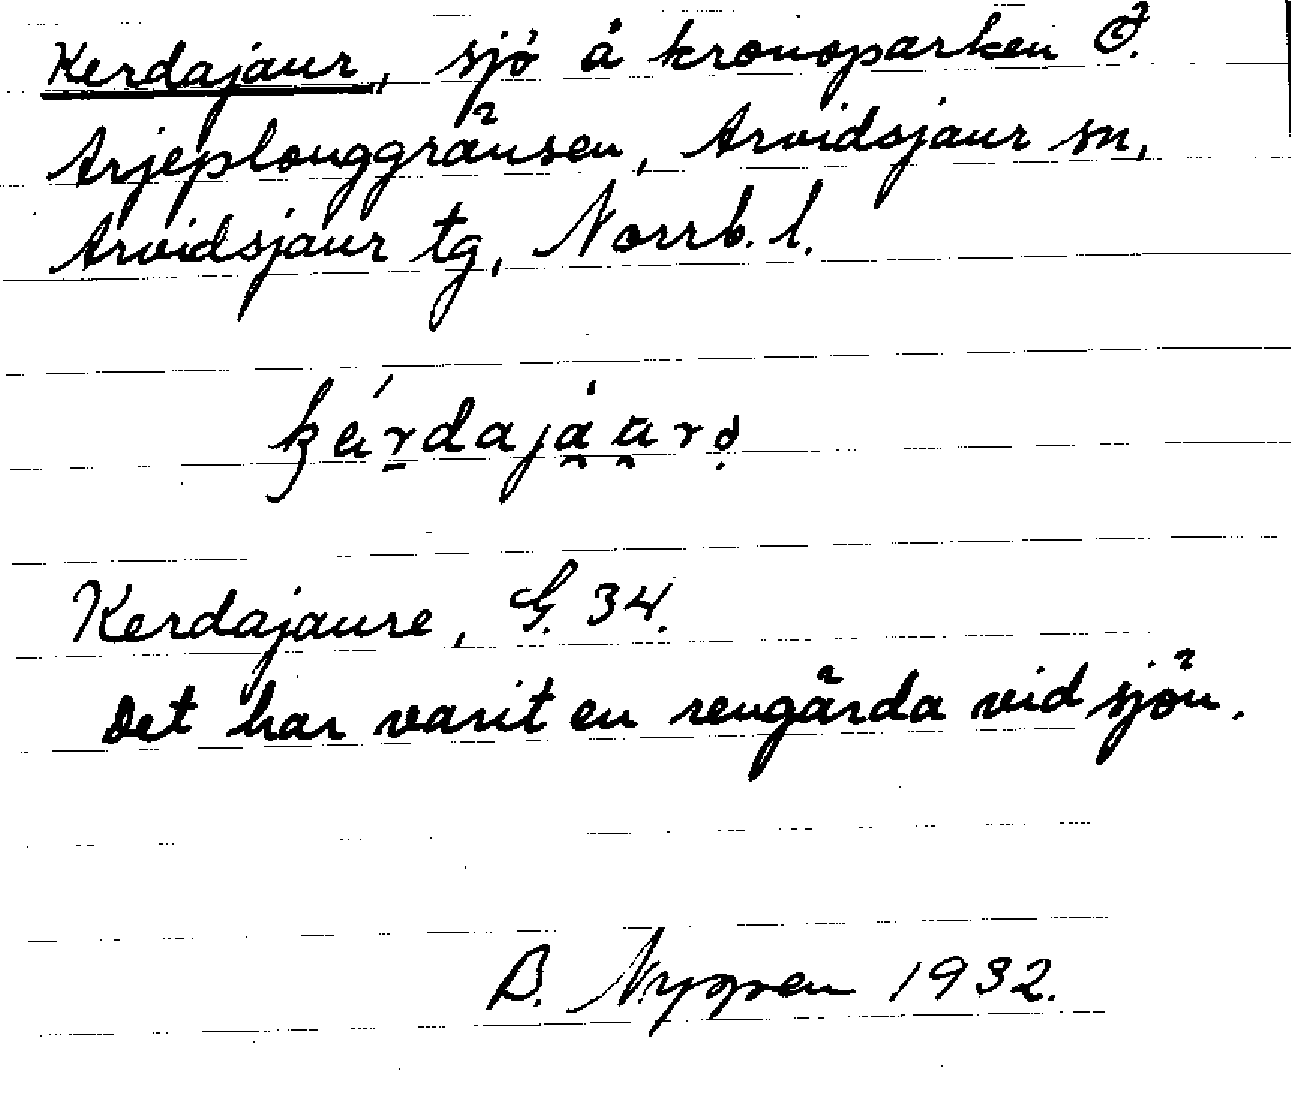 Kerdajaur, sjö å kronoparken Ö.
Arjeplouggränsen, Arvidsjaur sn,
Arvidsjaur tg, Norrb. l.
Kerdajaure, G. 34.
Det har varit en rengärda vid sjön.
B. Nygren 1932.